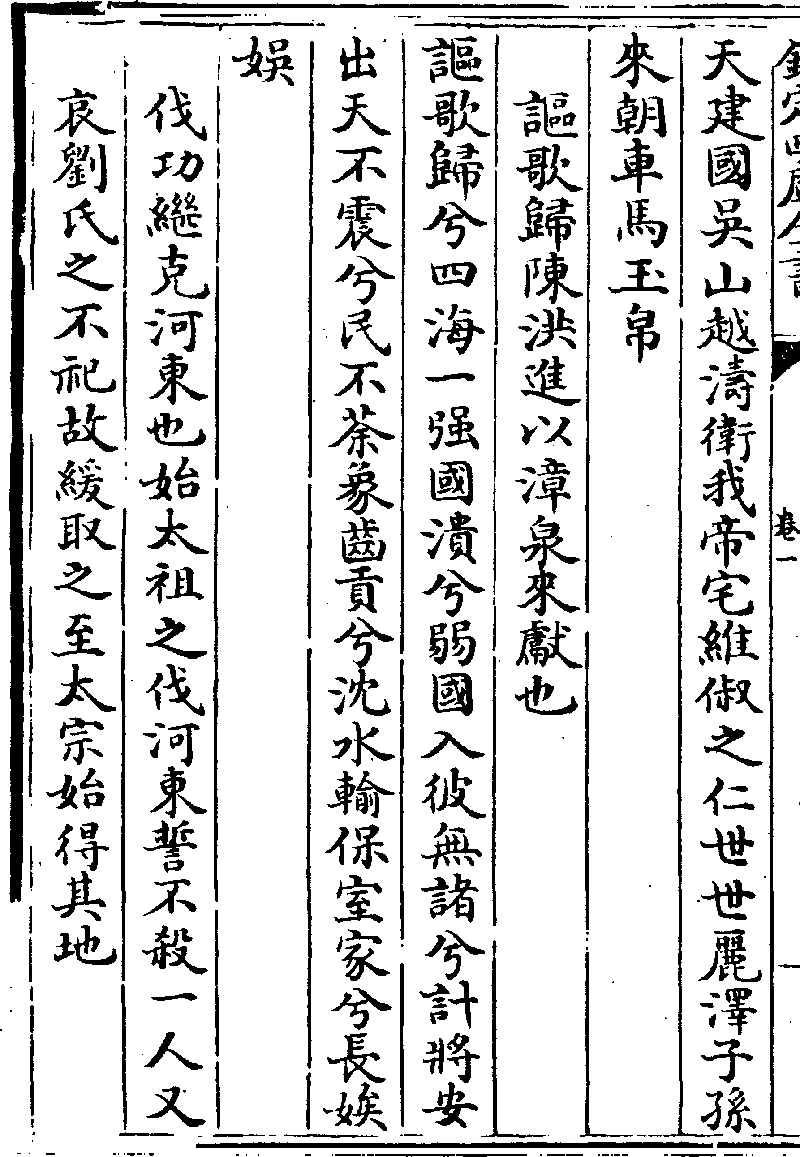 欽定四庫全書
卷一
天建國吳山越濤衛我帝宅維俶之仁世世麗澤子孫
來朝車馬玉帛
謳歌歸陳洪進以漳泉來獻也
謳歌歸兮四海一强國潰兮弱國入彼無諸兮計將安
出天不震兮民不荼象齒貢兮沈水輸保室家兮長娭
娯
伐功繼克河東也始太祖之伐河東誓不殺一人又
哀劉氏之不祀故緩取之至太宗始得其地